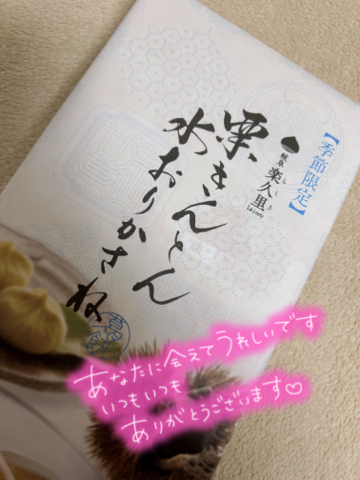 【季節限定】
岐阜 楽久里
らくり
栗きんとん
水おりかさね
あなたに会えてうれしいです
いつもいつも
ありがとうございます♡